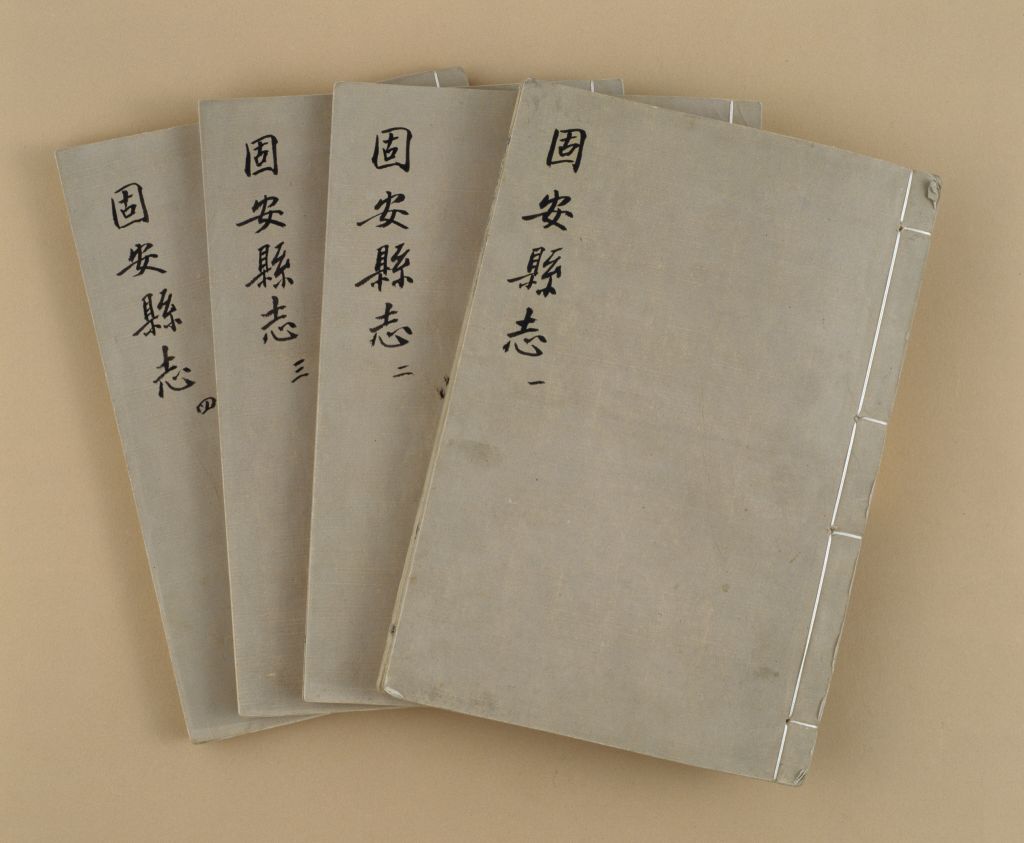 固安縣志 一
固安縣志 二
固安縣志 三
固安縣志 四